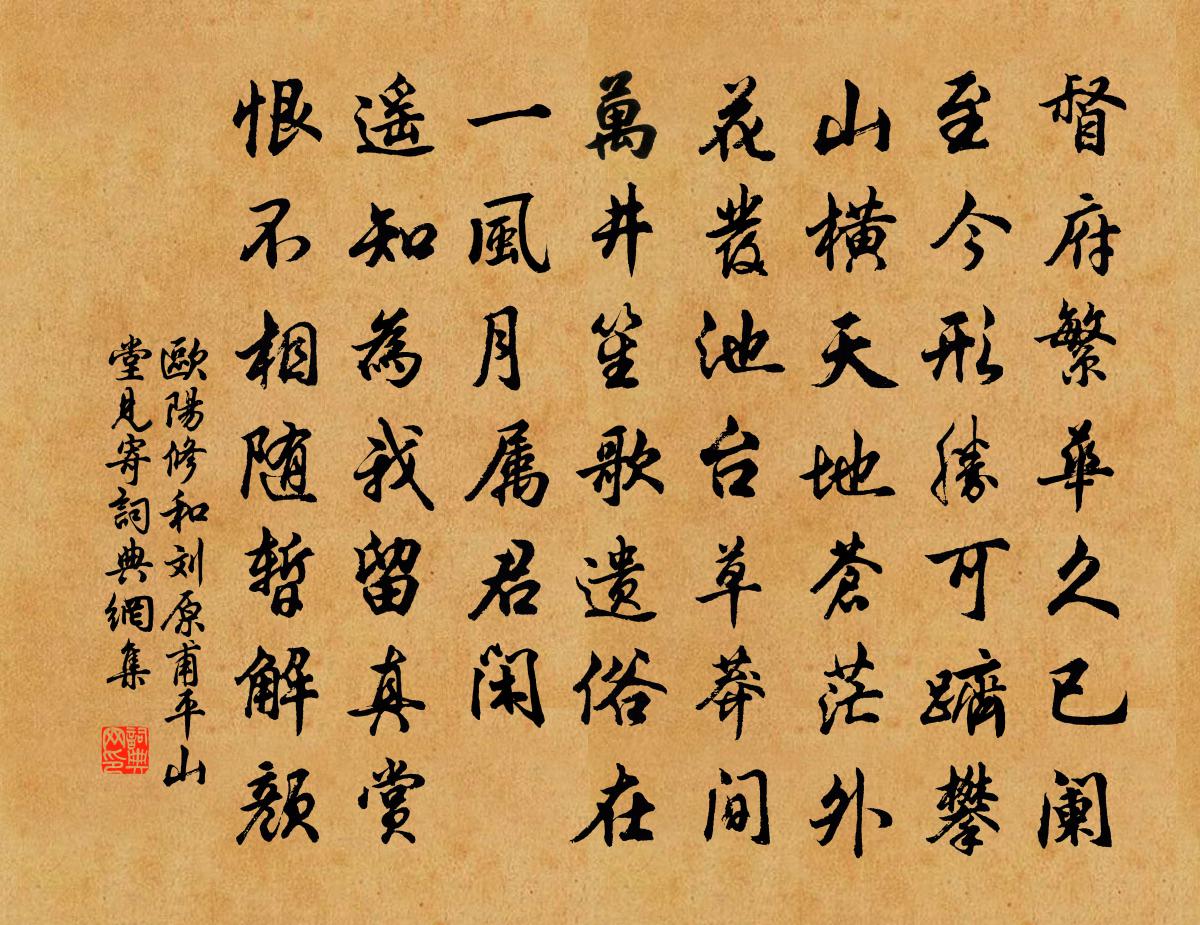 督府繁華久已阑
至今形勝可躋攀
山橫天地蒼茫外
花發池台草莽间
萬井笙歌遗俗在
一風月属君闲
遥知為我留真赏
恨不相随暫解颜
歐陽修和刘原甫平山
堂見寄詞典網集
詞典
网印